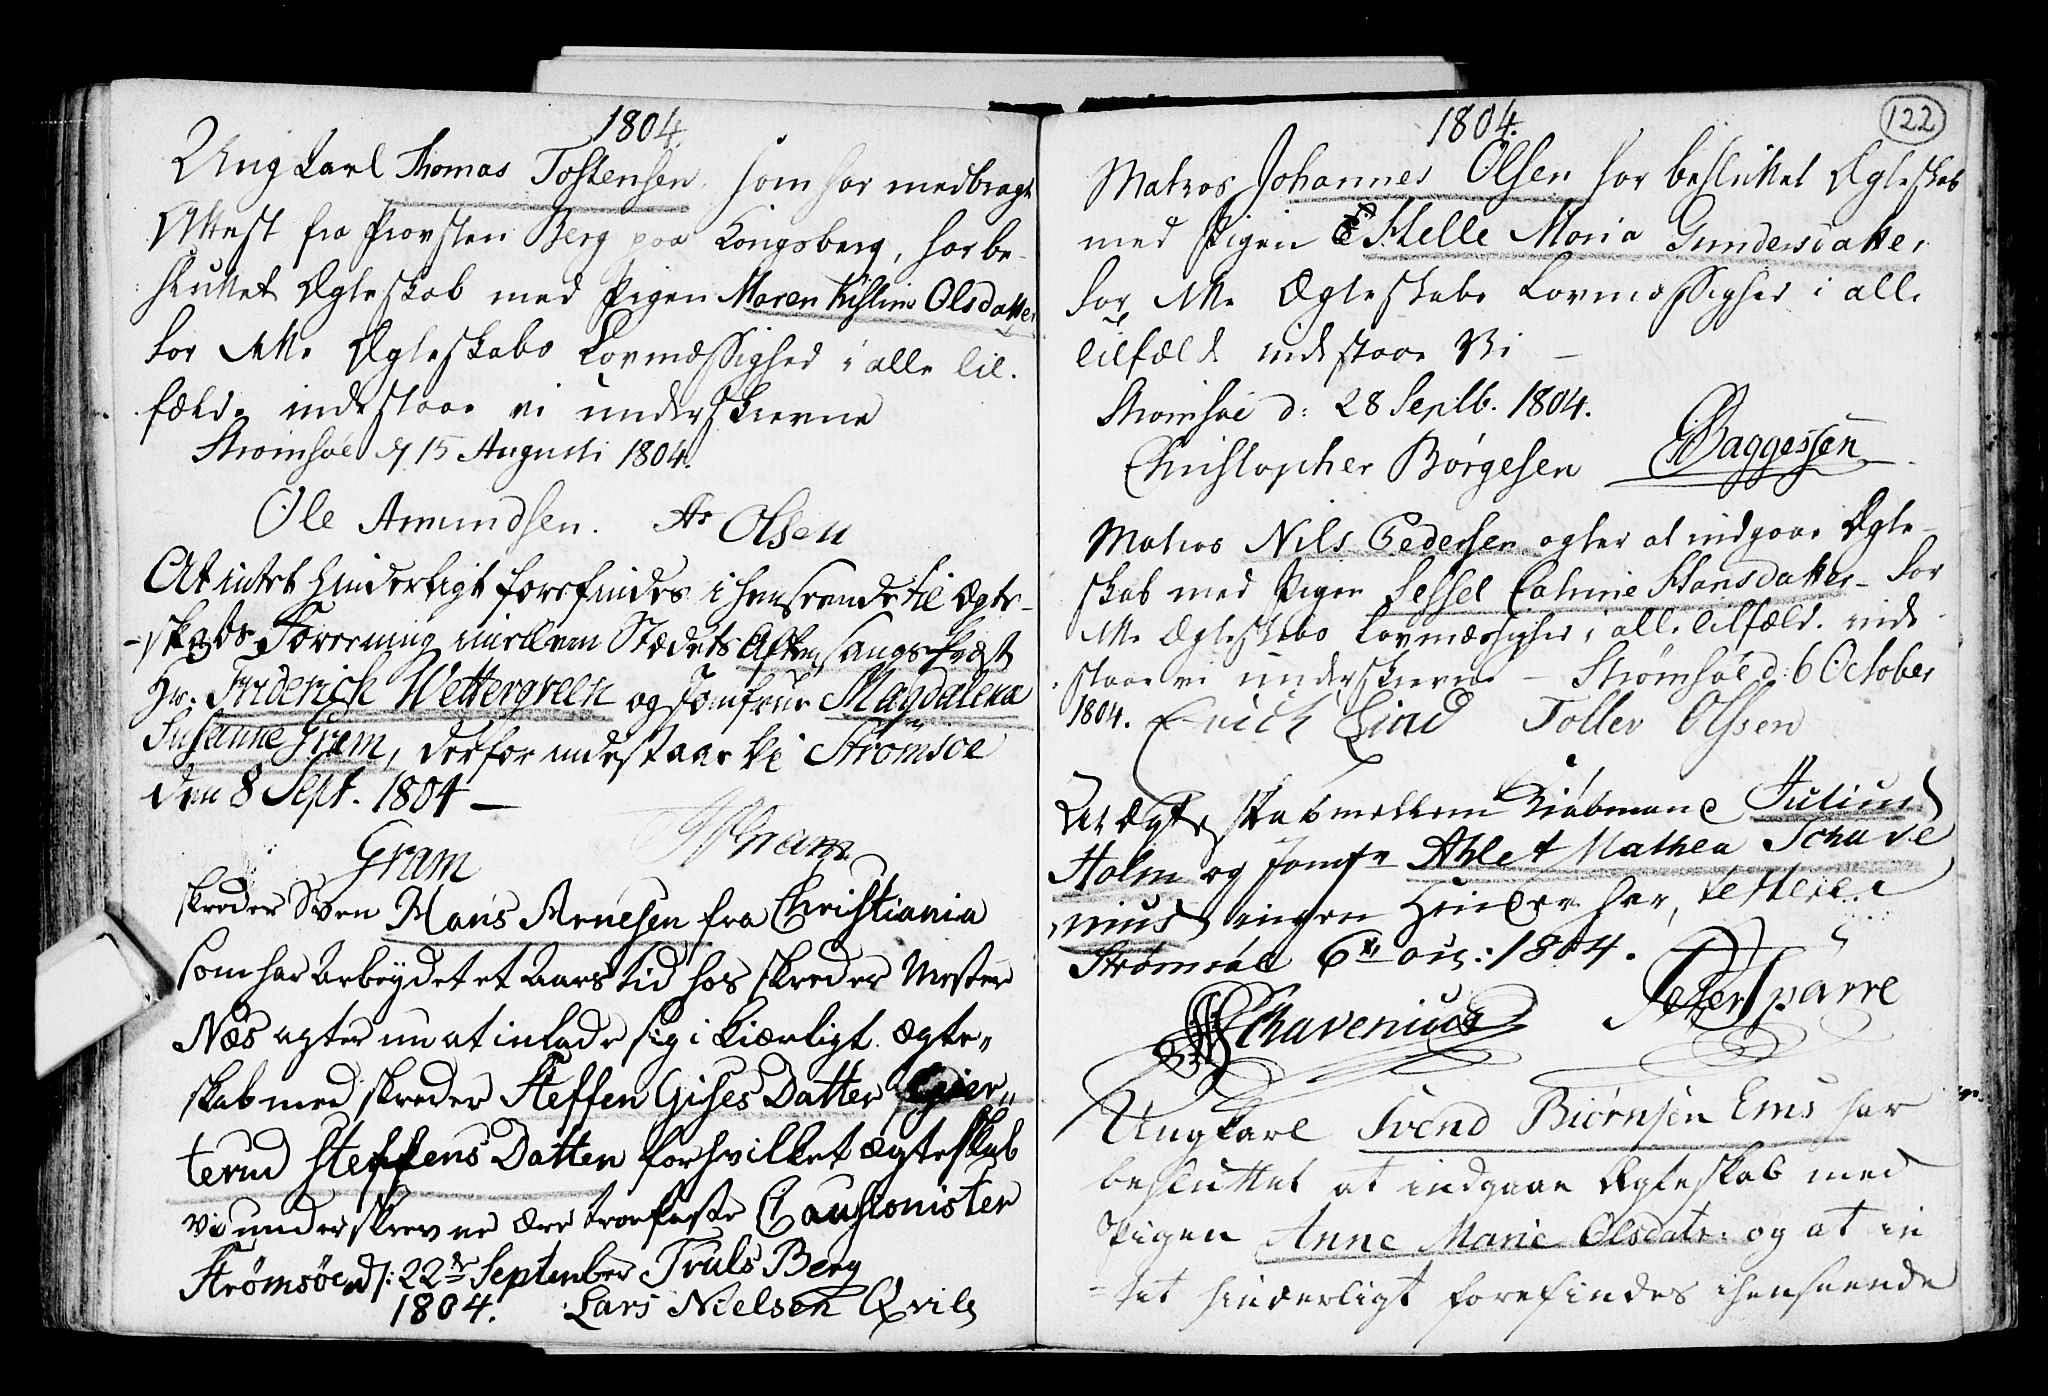 1804.
Ung Karl Thomas Tostensen, som har medbragt
Attest fra Provsten Berg paa Kongsberg, har be-
sluttet Ægteskab med Pigen Maren Kistine Olsdatter
for dette Ægteskabs Lovmæssighed i alle til-
fælde indestaae vi underskrevne
Strømsøe d 15 Augusti 1804.
Ole Amundsen. As Olsen
At intet hinderligt forefindes i henseende til Ægte-
-skabs Forening imellem Stædets Aftensangs-Præst
Hr. Friderich Wettergreen og Jomfrue Magdalena
Susanne Gram, derfor indestaar Vi Strömsöe
den 8 Sept. 1804 —
Gram Gram
skreder Sven Hans Arnesen fra Christiania
som har Arbeydet et Aars tid hos skreder Mester
Næs agter nu at inlade sig i kiærligt ægte„
skab med skreder Steffen Gises Datter Gier„
terud Steffens Datter for hvilket ægteskab
vi under skrevne ere troefaste Causionister
Strømsøe d: 22de September Truls Berg
1804. Lars Nielsen Qvile
1804.
122
Matros Johannes Olsen har besluttet Ægteskab
med Pigen Helle Maria Gundersdatter,
for dette Ægteskabs Lovmæssighed i alle
tilfælde indestaae Vi —
Strømsøe d: 28 Septb. 1804.
Christopher Børgesen Baggessen
Matros Nils Pedersen agter at indgaae Ægte-
skab med Pigen Sessel Catrine Hansdatter - for
dette Ægteskabs Lovmæssighed i alle tilfælde inde-
staae vi underskrevne - Strømsøe d: 6 October
1804. Erich Lind Toller Olssen
At Ægteskab mellem Kiøbmand Julius
Holm og Jomfr Ahlet Mathea Schave
nius ingen Hinder har,
Strømsøe 6te 1804.
Schavenius Peter Sparre
Ungkarl Svend Biørnsen Ems har
besluttet at indgaae Ægteskab med
Pigen Anne Marie Olsdatr. og at in
-tet hinderligt forefindes i henseende